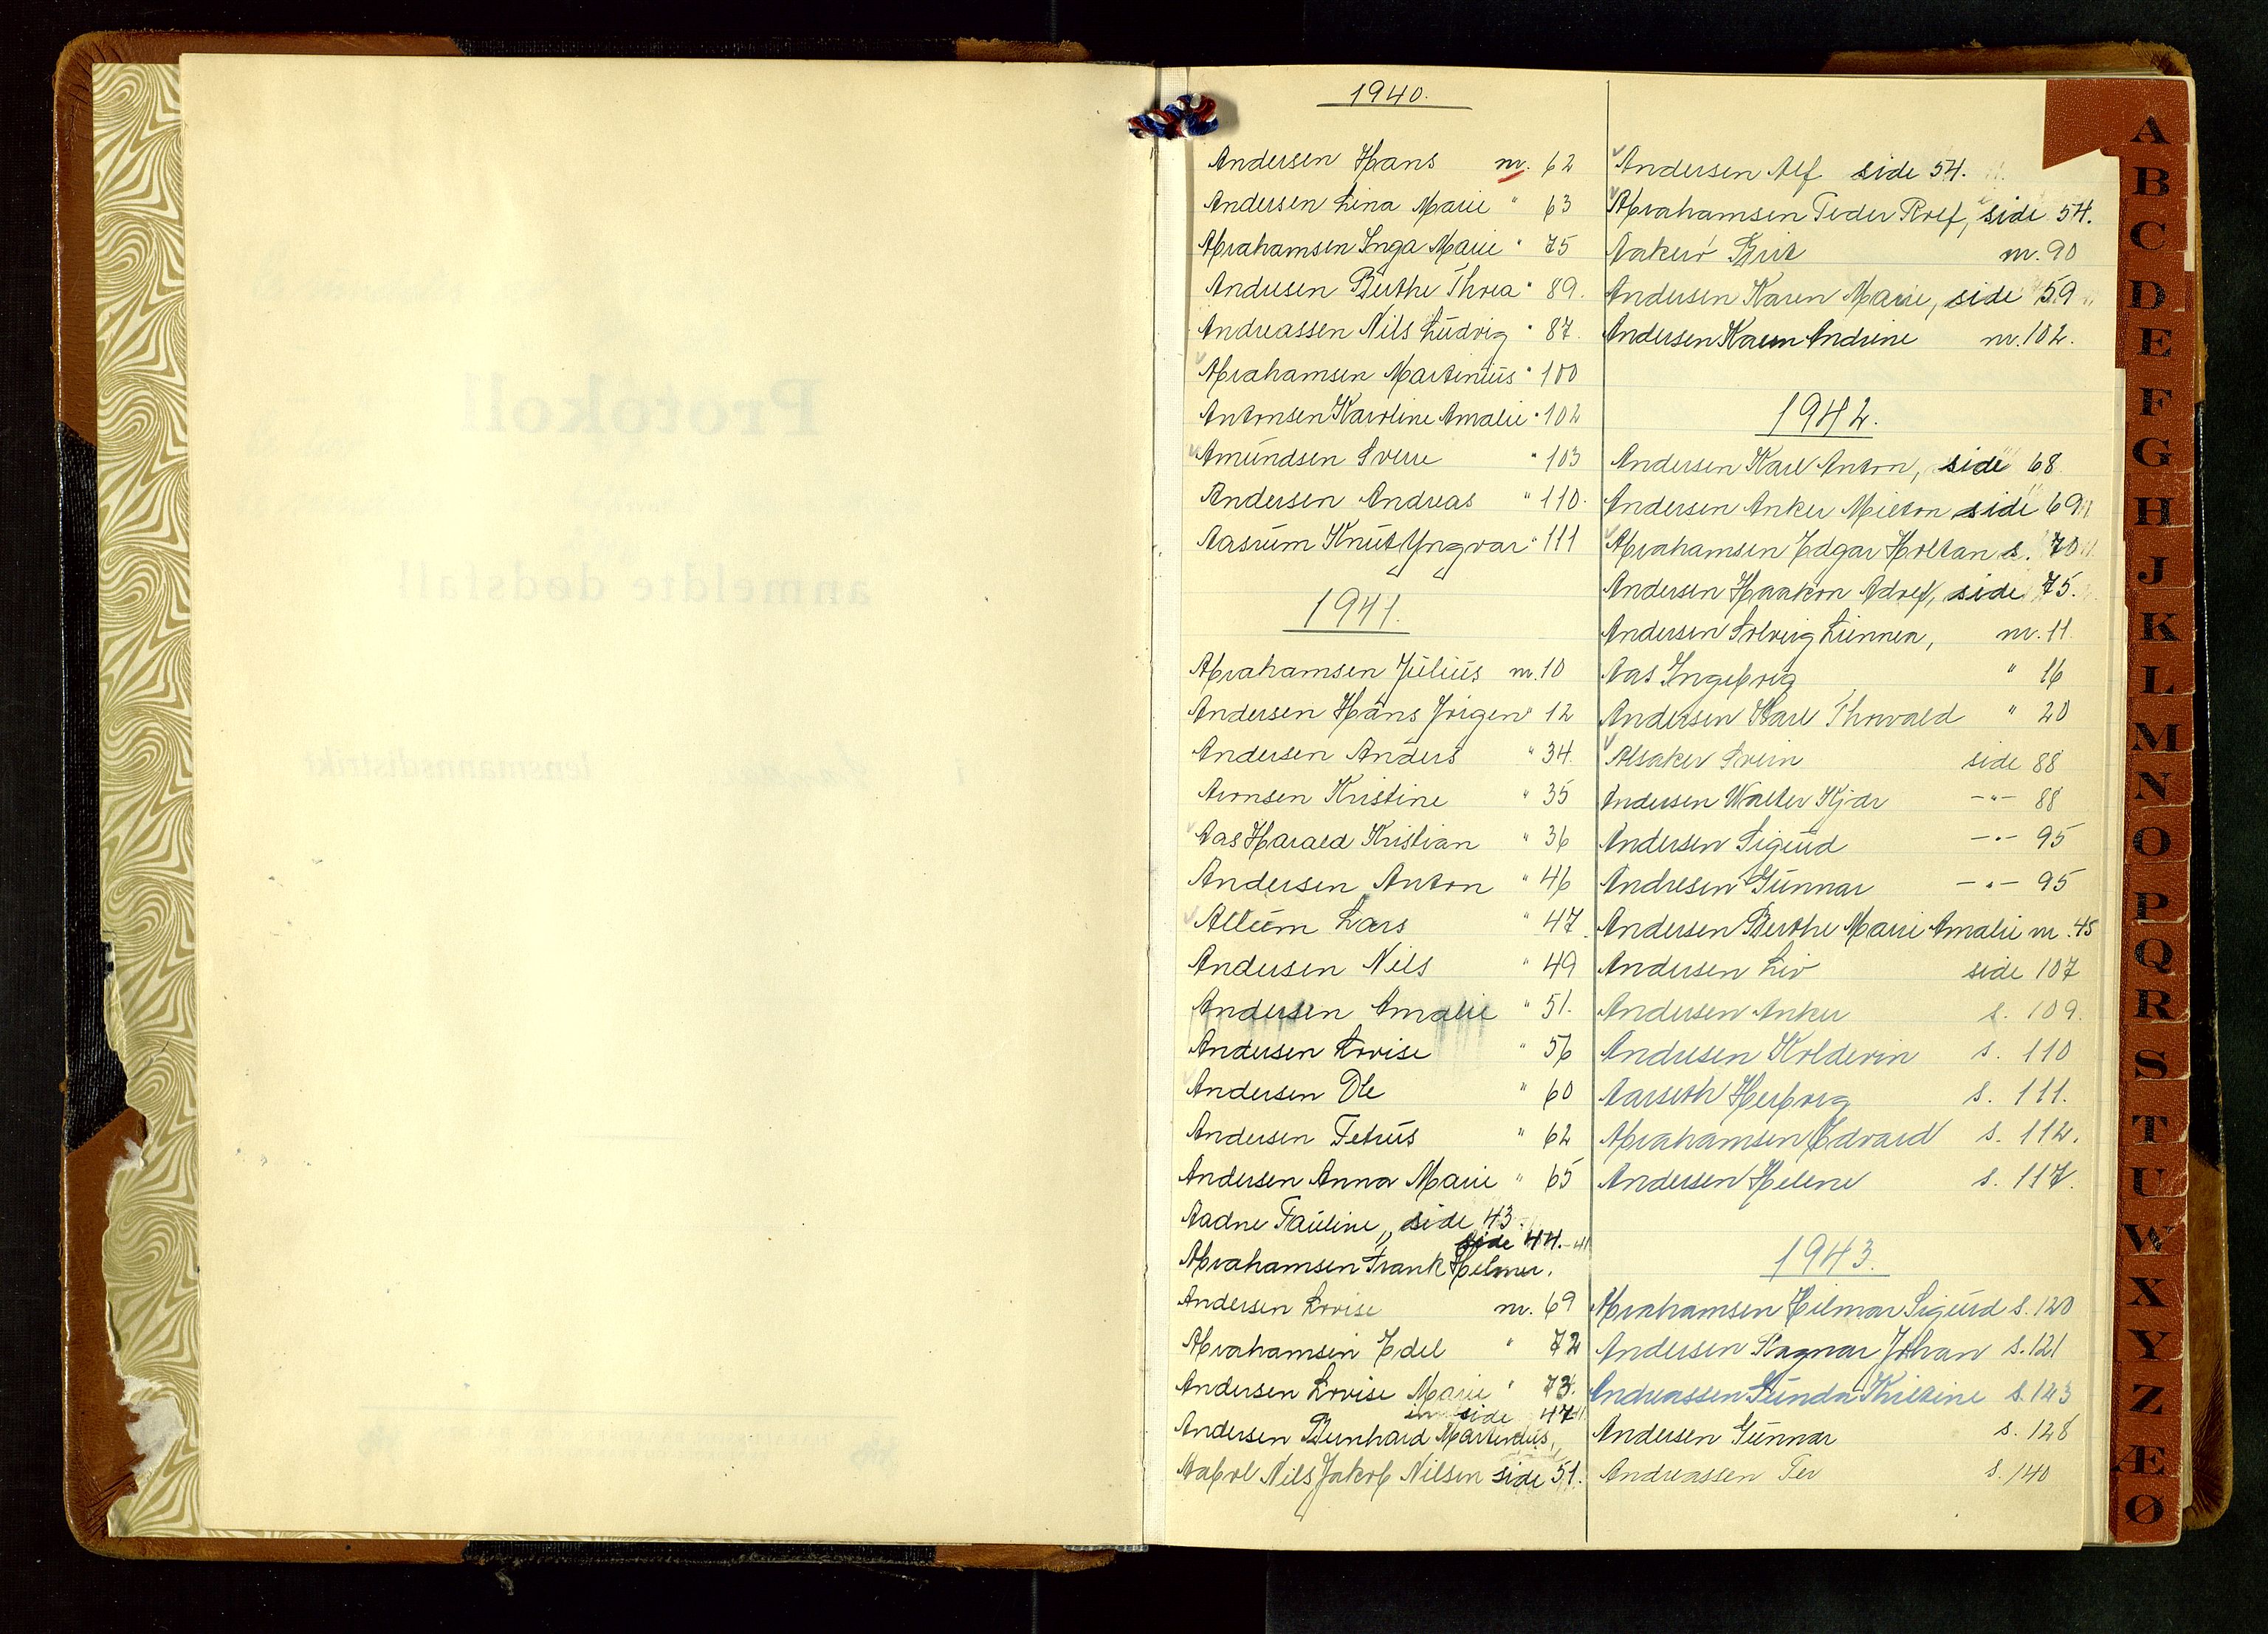 1940.
Andersen Hans nr. 62
Andersen Lina Marie " 63
Abrahamsen Inga Marie " 75
Andersen Berthe Thora " 89.
Andreassen Nils Ludvig " 87.
Abrahamsen Martinius " 100
Antonsen Karoline Amalie " 102
Amundsen Sverre " 103
Andersen Andreas " 110.
Aasrum Knut Yngvar " 111
1941.
Abrahamsen Julius nr. 10
Andersen Hans Jörgen " 12
Andersen Anders " 34.
Aronsen Kristine " 35
Aas Harald Kristian " 36
Andersen Anton " 46
Allum Lars " 47.
Andersen Nils " 49
Andersen Amalie " 51.
Andersen Lovise " 56
Andersen Ole " 60
Andersen Petrus " 62
Andersen Anna Marie " 65
Aadne Pauline, side 43.
side 44.
Abrahamsen Frank Helmer.
Andersen Lovise nr. 69
Abrahamsen Edel " 72
Andersen Lovise Marie " 73.
side 47
Andersen Bernhard Martinius,
Aabol Nils Jakob Nilsen side 51.
Andersen Alf side 54.
Abrahamsen Peder Rolf, side 54.
Aakerö Brit nr. 90
Andersen Karen Marie, side 59
Andersen Karen Andrine nr. 102.
1942.
Andersen Karl Anton, side 68
Andersen Anker Milton side 69
Abrahamsen Edgar Holtan s. 70
Andersen Haakon Adolf, side 75.
Andersen Solveig Linnea, nr. 11.
Aas Ingeborg " 16
Andersen Karl Thorvald " 20
Alsaker Svein side 88
Andersen Walter Kjär -"- 88
Andersen Sigurd -"- 95
Andresen Gunnar -"- 95
Andersen Berthe Marie Amalie nr. 45
Andersen Liv side 107
Andersen Anker s. 109.
Andersen Kolbein s. 110
Aarseth Herborg s. 111.
Abrahamsen Edvard s. 112.
Andersen Helene s. 117.
1943.
Abrahamsen Hilmar Sigurd s. 120
Andersen Ragnar Johan s. 121
Andreassen Gunda Kristine s. 123
Andersen Gunnar s. 128
Andreassen Per s. 140
A
B
C
D
E
F
G
H
J
K
L
M
N
O
P
Q
R
S
T
U
W
X
Y
Z
Æ
Ø
Protokoll
anmeldte dødsfall
i lensmannsdistrikt